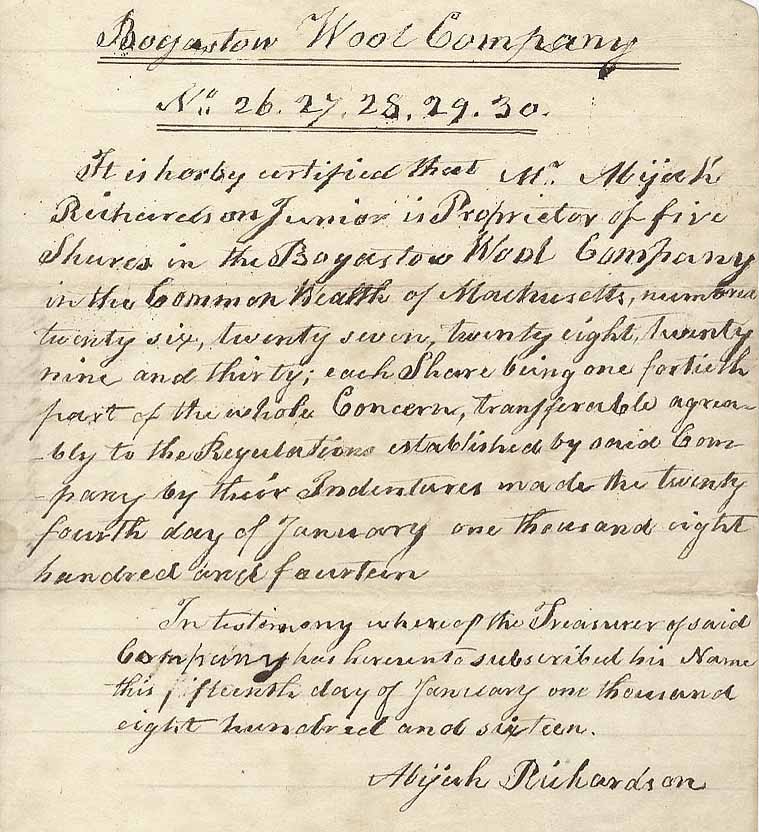 Bogastow Wool Company
No. 26. 27. 28. 29. 30.
It is harby certified that Mr. Abijah
Richardson Junior is Proprietor of five
Shares in the Bogastow Wool Company
in the Common Wealth of Machusetts, numbred
twenty six, twenty seven, twenty eight, twenty
nine and thirty; each Share being one fortieth
part of the whole Concern, transferable agrea-
-bly to the Regulations established by said Com-
-pany by their Indentures made the twenty
fourth day of January one thousand eight
hundred and fourteen
In testimony whereof the Treasurer of said
Company has hereunto subscribed his Name
this fifteenth day of January one thousand
eight hundred and sixteen.
Abijah Richardson